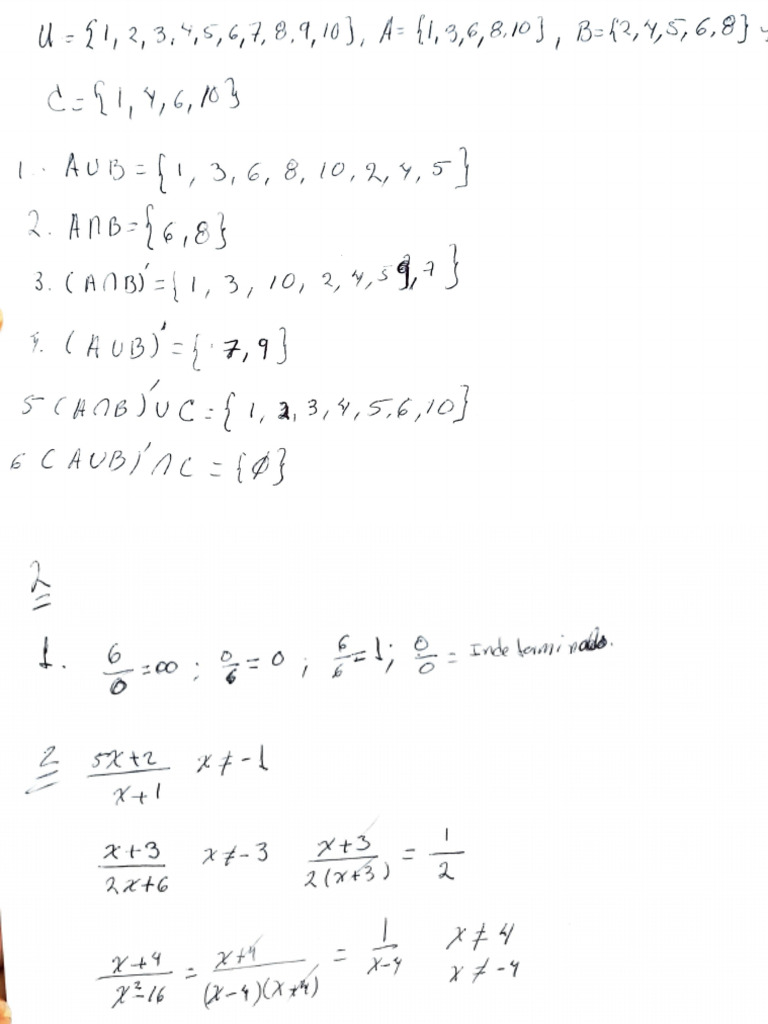 U = {1, 2, 3, 4, 5, 6, 7, 8, 9, 10}, A = {1, 3, 6, 8, 10}, B = {2, 4, 5, 6, 8} y
C = {1, 4, 6, 10}
1. A∪B = {1, 3, 6, 8, 10, 2, 4, 5}
2. A∩B = {6, 8}
3. (A∩B)' = {1, 3, 10, 2, 4, 5 9, 7}
4. (A∪B)' = {7, 9}
5 (A∩B)' ∪ C = {1, 2, 3, 4, 5, 6, 10}
6 (A∪B)' ∩ C = {∅}
2
1. 6/0 = ∞ ; 0/6 = 0 ; 6/6 = 1 ; 0/0 = Indeterminado.
2 (5x+2)/(x+1) x ≠ -1
(x+3)/(2x+6) x ≠ -3 (x+3)/(2(x+3)) = 1/2
(x+4)/(x²-16) = (x+4)/((x-4)(x+4)) = 1/(x-4) x ≠ 4
x ≠ -4